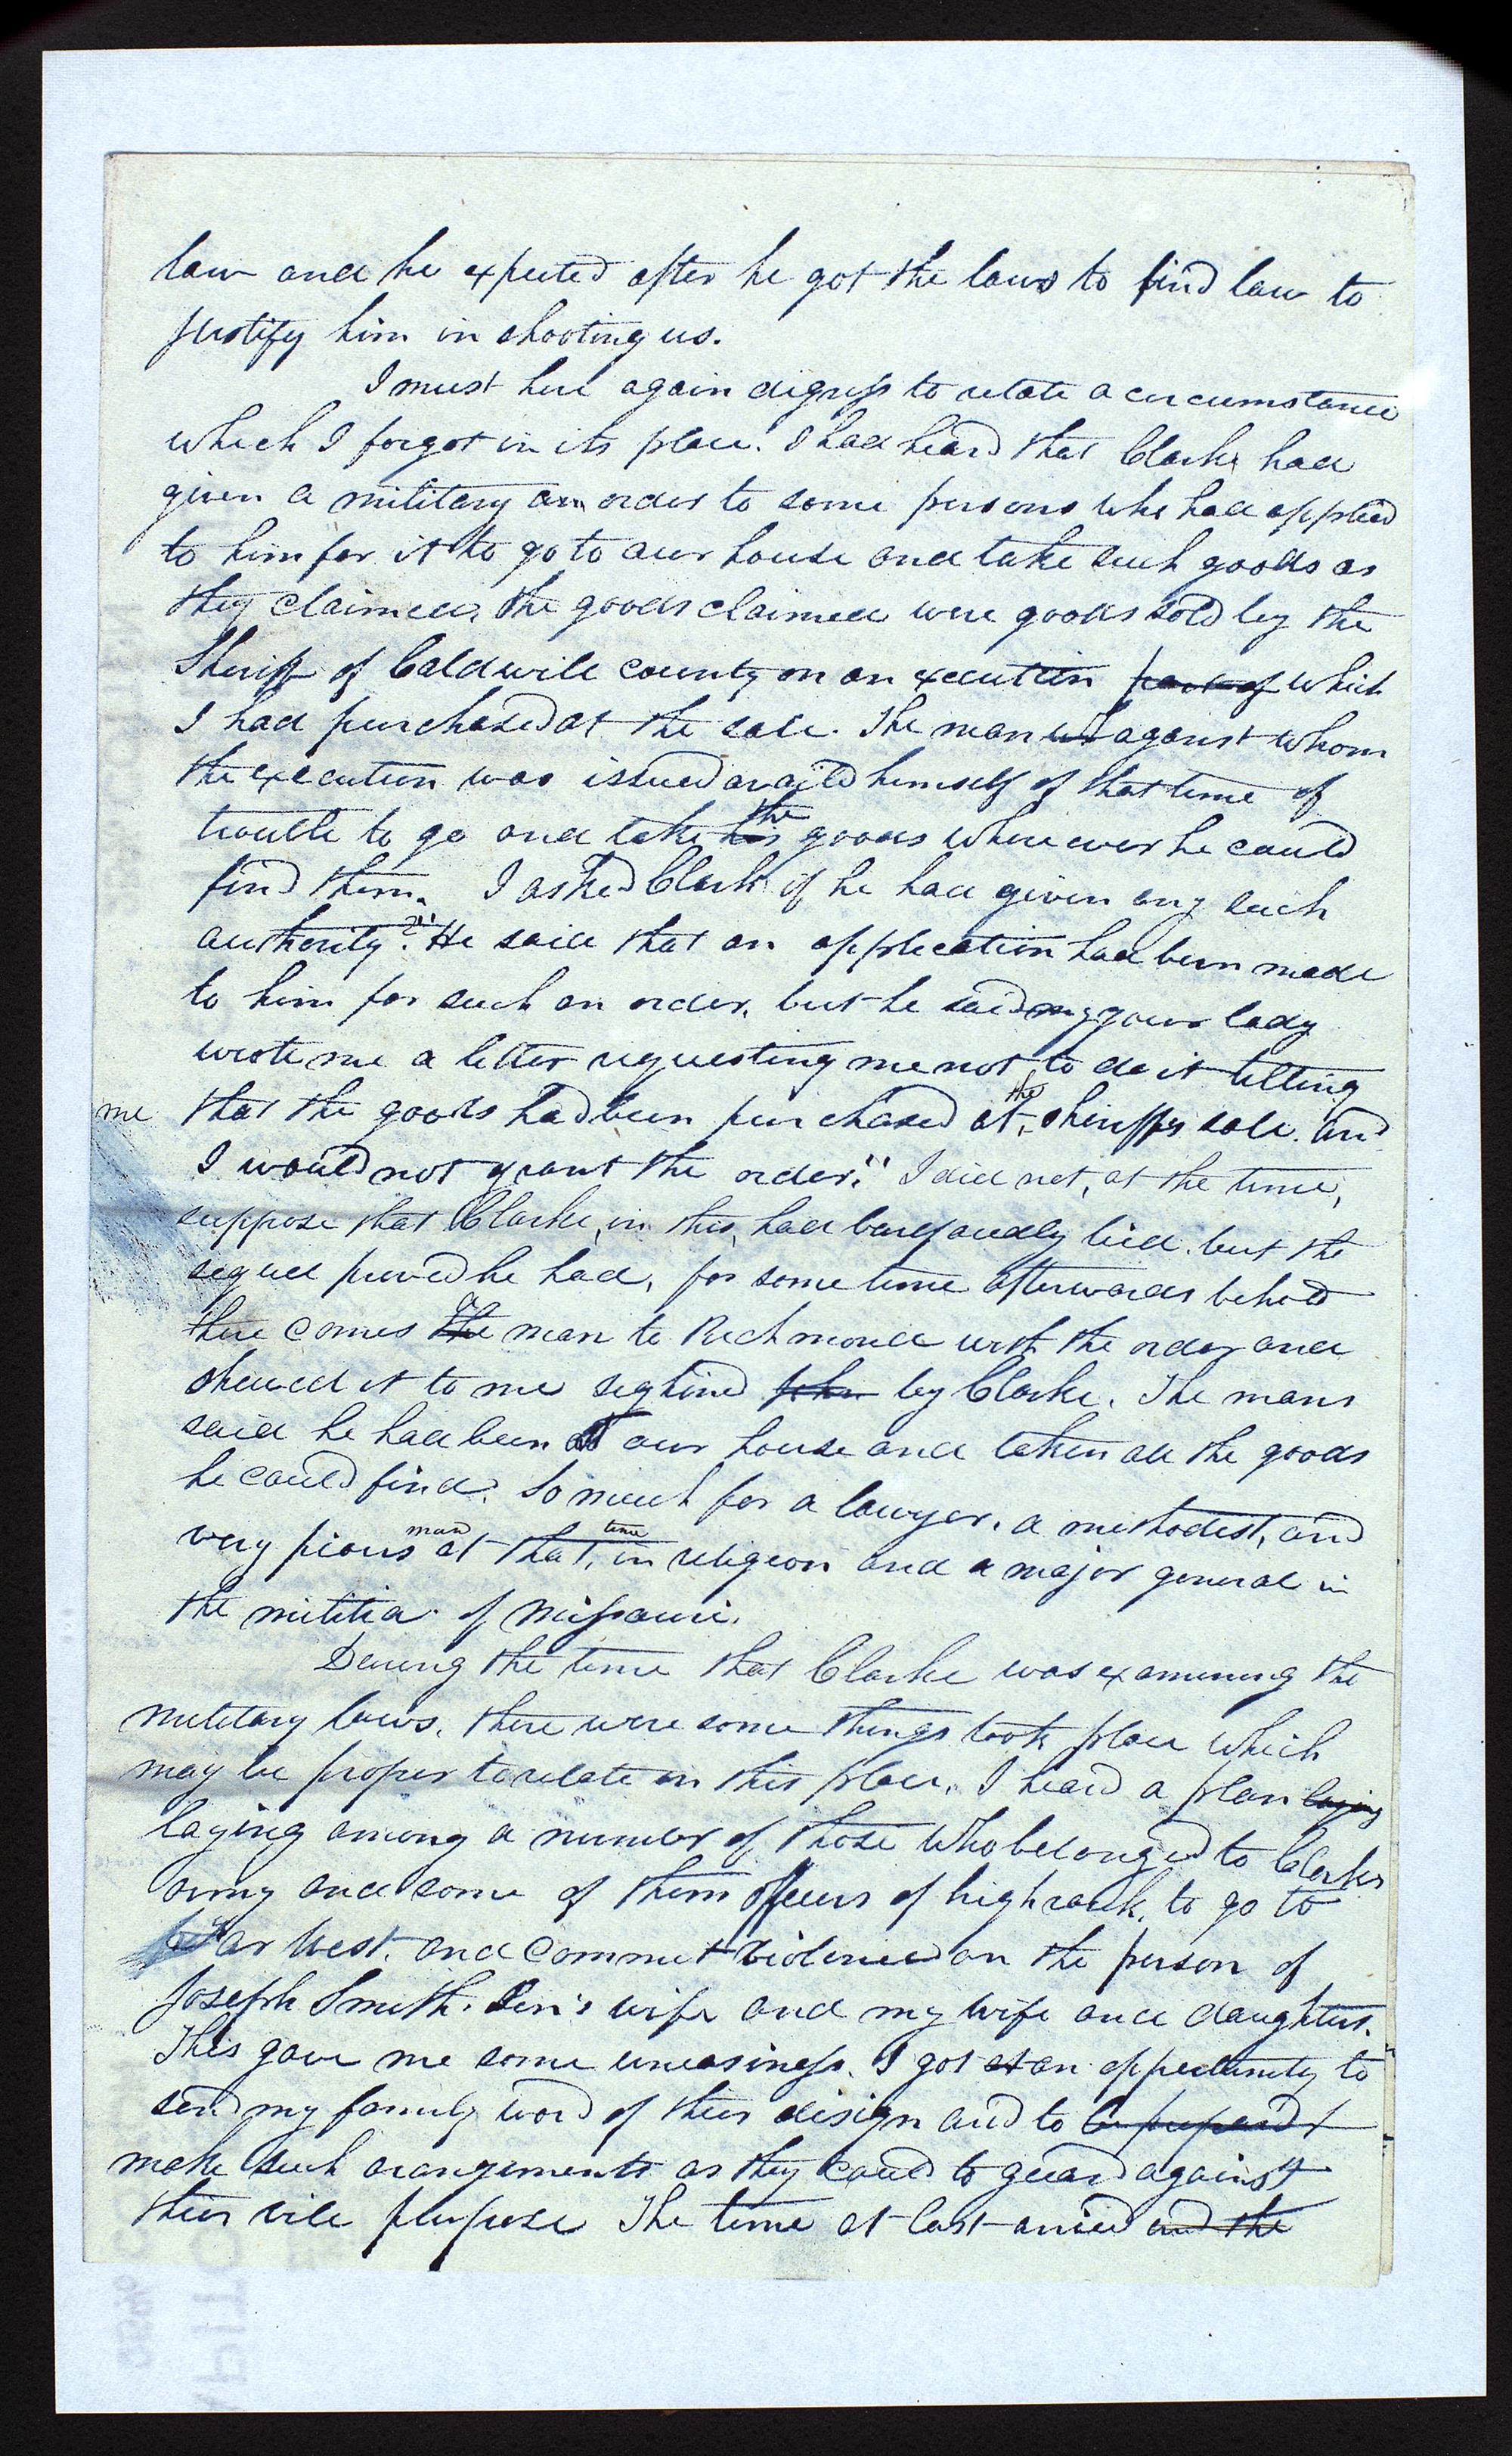 law and he expected after he got the laws to find law to
justify him in shooting us.
I must here again digress to relate a circumstance
which I forgot in its place. I had heard that Clarke had
given a military an order to some persons who had applied
to him for it to go to our house and take such goods as
they claimed, the goods claimed were goods sold by the
Sheriff of Caldwell county on an execution part of which
I had purchased at the sale. The man against whom
the execution was issued availed himself of that time of
trouble to go and take his the goods where ever he could
find them. I asked Clark if he had given any such
authority. He said that an application had been made
to him for such an order, but he said my your lady
wrote me a letter requesting me not to do it telling
me that the goods had been purchased at the sheriffs sale. and
I would not grant the order." I did not, at the time,
suppose that Clarke, in this, had barefacedly lied. but the
sequel proved he had, for some time afterwards behold
there comes the a man to Richmond with the order and
shewed it to me seghned John by Clarke. The mans
said he had been at our house and taken all the goods
he could find. So much for a lawyer, a methodest, and
very pious man at that, time in religion and a major general in
the militia of Missouri.
During the time that Clarke was examining the
military laws, there were some things took place which
may be proper to relate in this place. I heard a plan laying
laying among a number of those who belonged to Clarkes
army and some of them officers of high rank, to go to
Far West, and commit violence on the person of
Joseph Smith. Sen's wife and my wife and daughters.
This gave me some uneasiness. I got at an oppertunity to
send my family word of their design and to be prepared t
make such arangements as they could to guard against
their vile purpose The time at last arrived and the